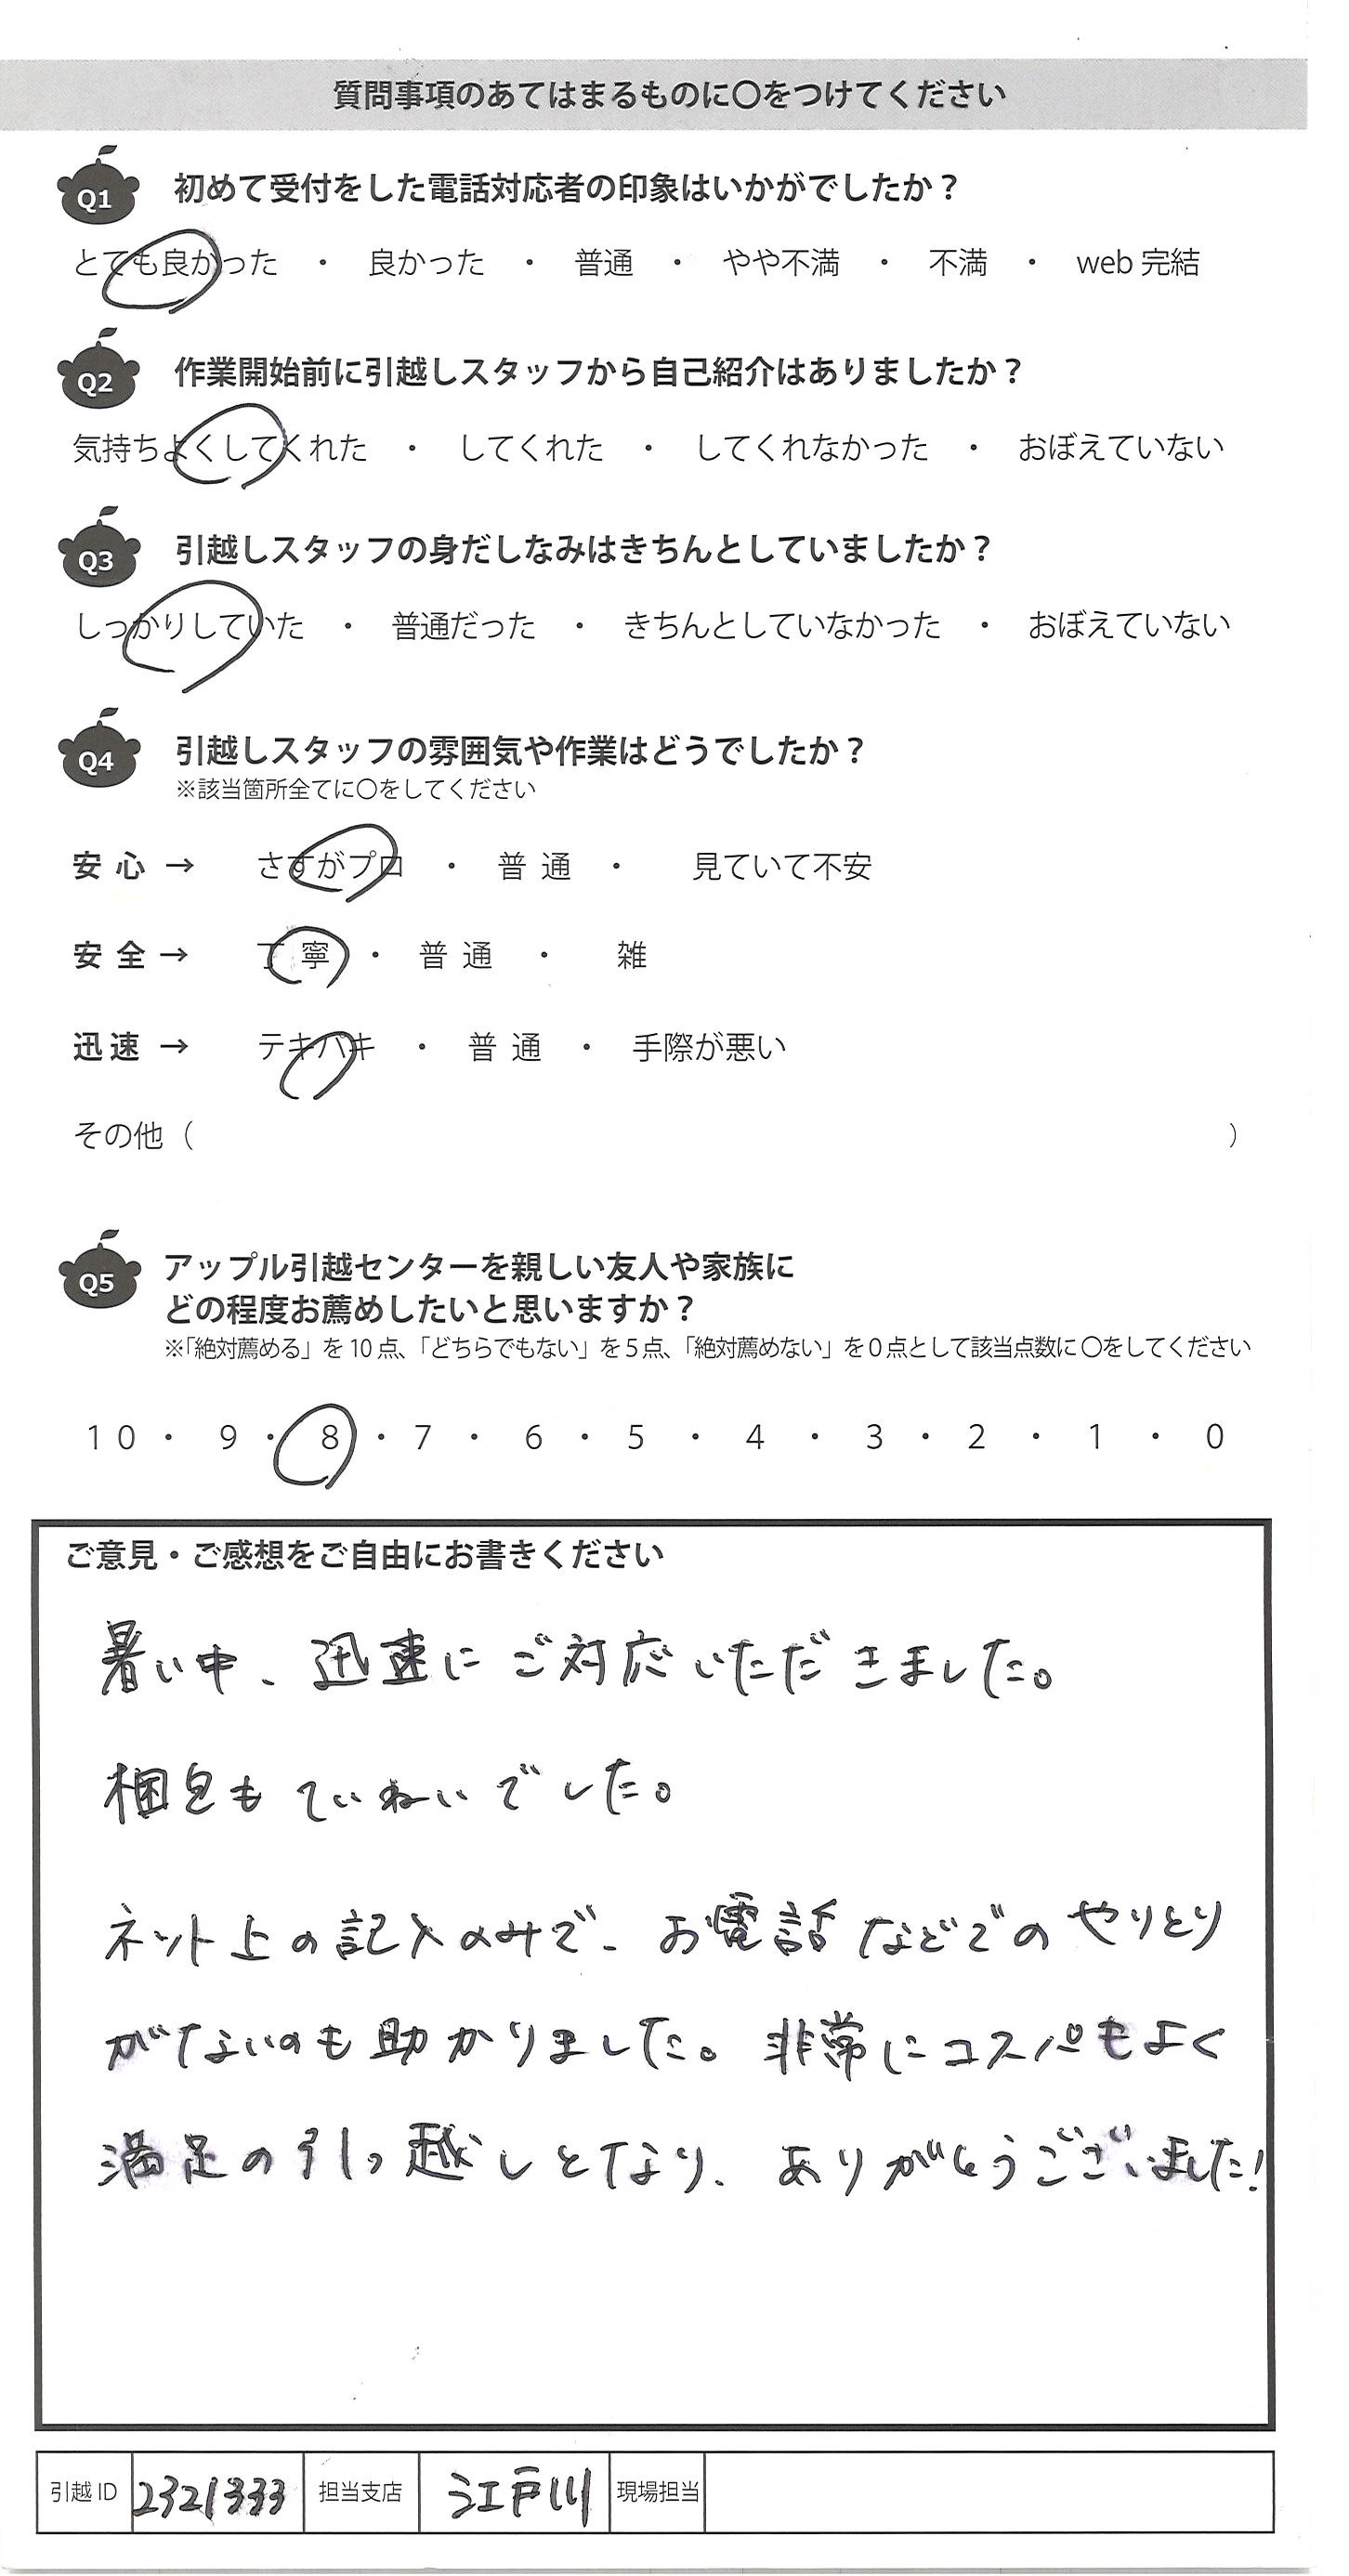 質問事項のあてはまるものに〇をつけてください
Q1 初めて受付をした電話対応者の印象はいかがでしたか？
とても良かった ・ 良かった ・ 普通 ・ やや不満 ・ 不満 ・ web 完結
Q2 作業開始前に引越しスタッフから自己紹介はありましたか？
気持ちよくしてくれた ・ してくれた ・ してくれなかった ・ おぼえていない
Q3 引越しスタッフの身だしなみはきちんとしていましたか？
しっかりしていた ・ 普通だった ・ きちんとしていなかった ・ おぼえていない
Q4 引越しスタッフの雰囲気や作業はどうでしたか？
※該当箇所全てに〇をしてください
安心 → さすがプロ ・ 普通 ・ 見ていて不安
安全 → 丁寧 ・ 普通 ・ 雑
迅速 → テキパキ ・ 普通 ・ 手際が悪い
その他（ ）
Q5 アップル引越センターを親しい友人や家族に
どの程度お薦めしたいと思いますか？
※「絶対薦める」を10点、「どちらでもない」を5点、「絶対薦めない」を0点として該当点数に〇をしてください
10 ・ 9 ・ 8 ・ 7 ・ 6 ・ 5 ・ 4 ・ 3 ・ 2 ・ 1 ・ 0
ご意見・ご感想をご自由にお書きください
暑い中、迅速にご対応いただきました。
梱包もていねいでした。
ネット上の記入のみで、お電話などでのやりとり
がないのも助かりました。非常にコスパもよく
満足の引っ越しとなり、ありがとうございました!
引越 ID 2321333 担当支店 江戸川 現場担当